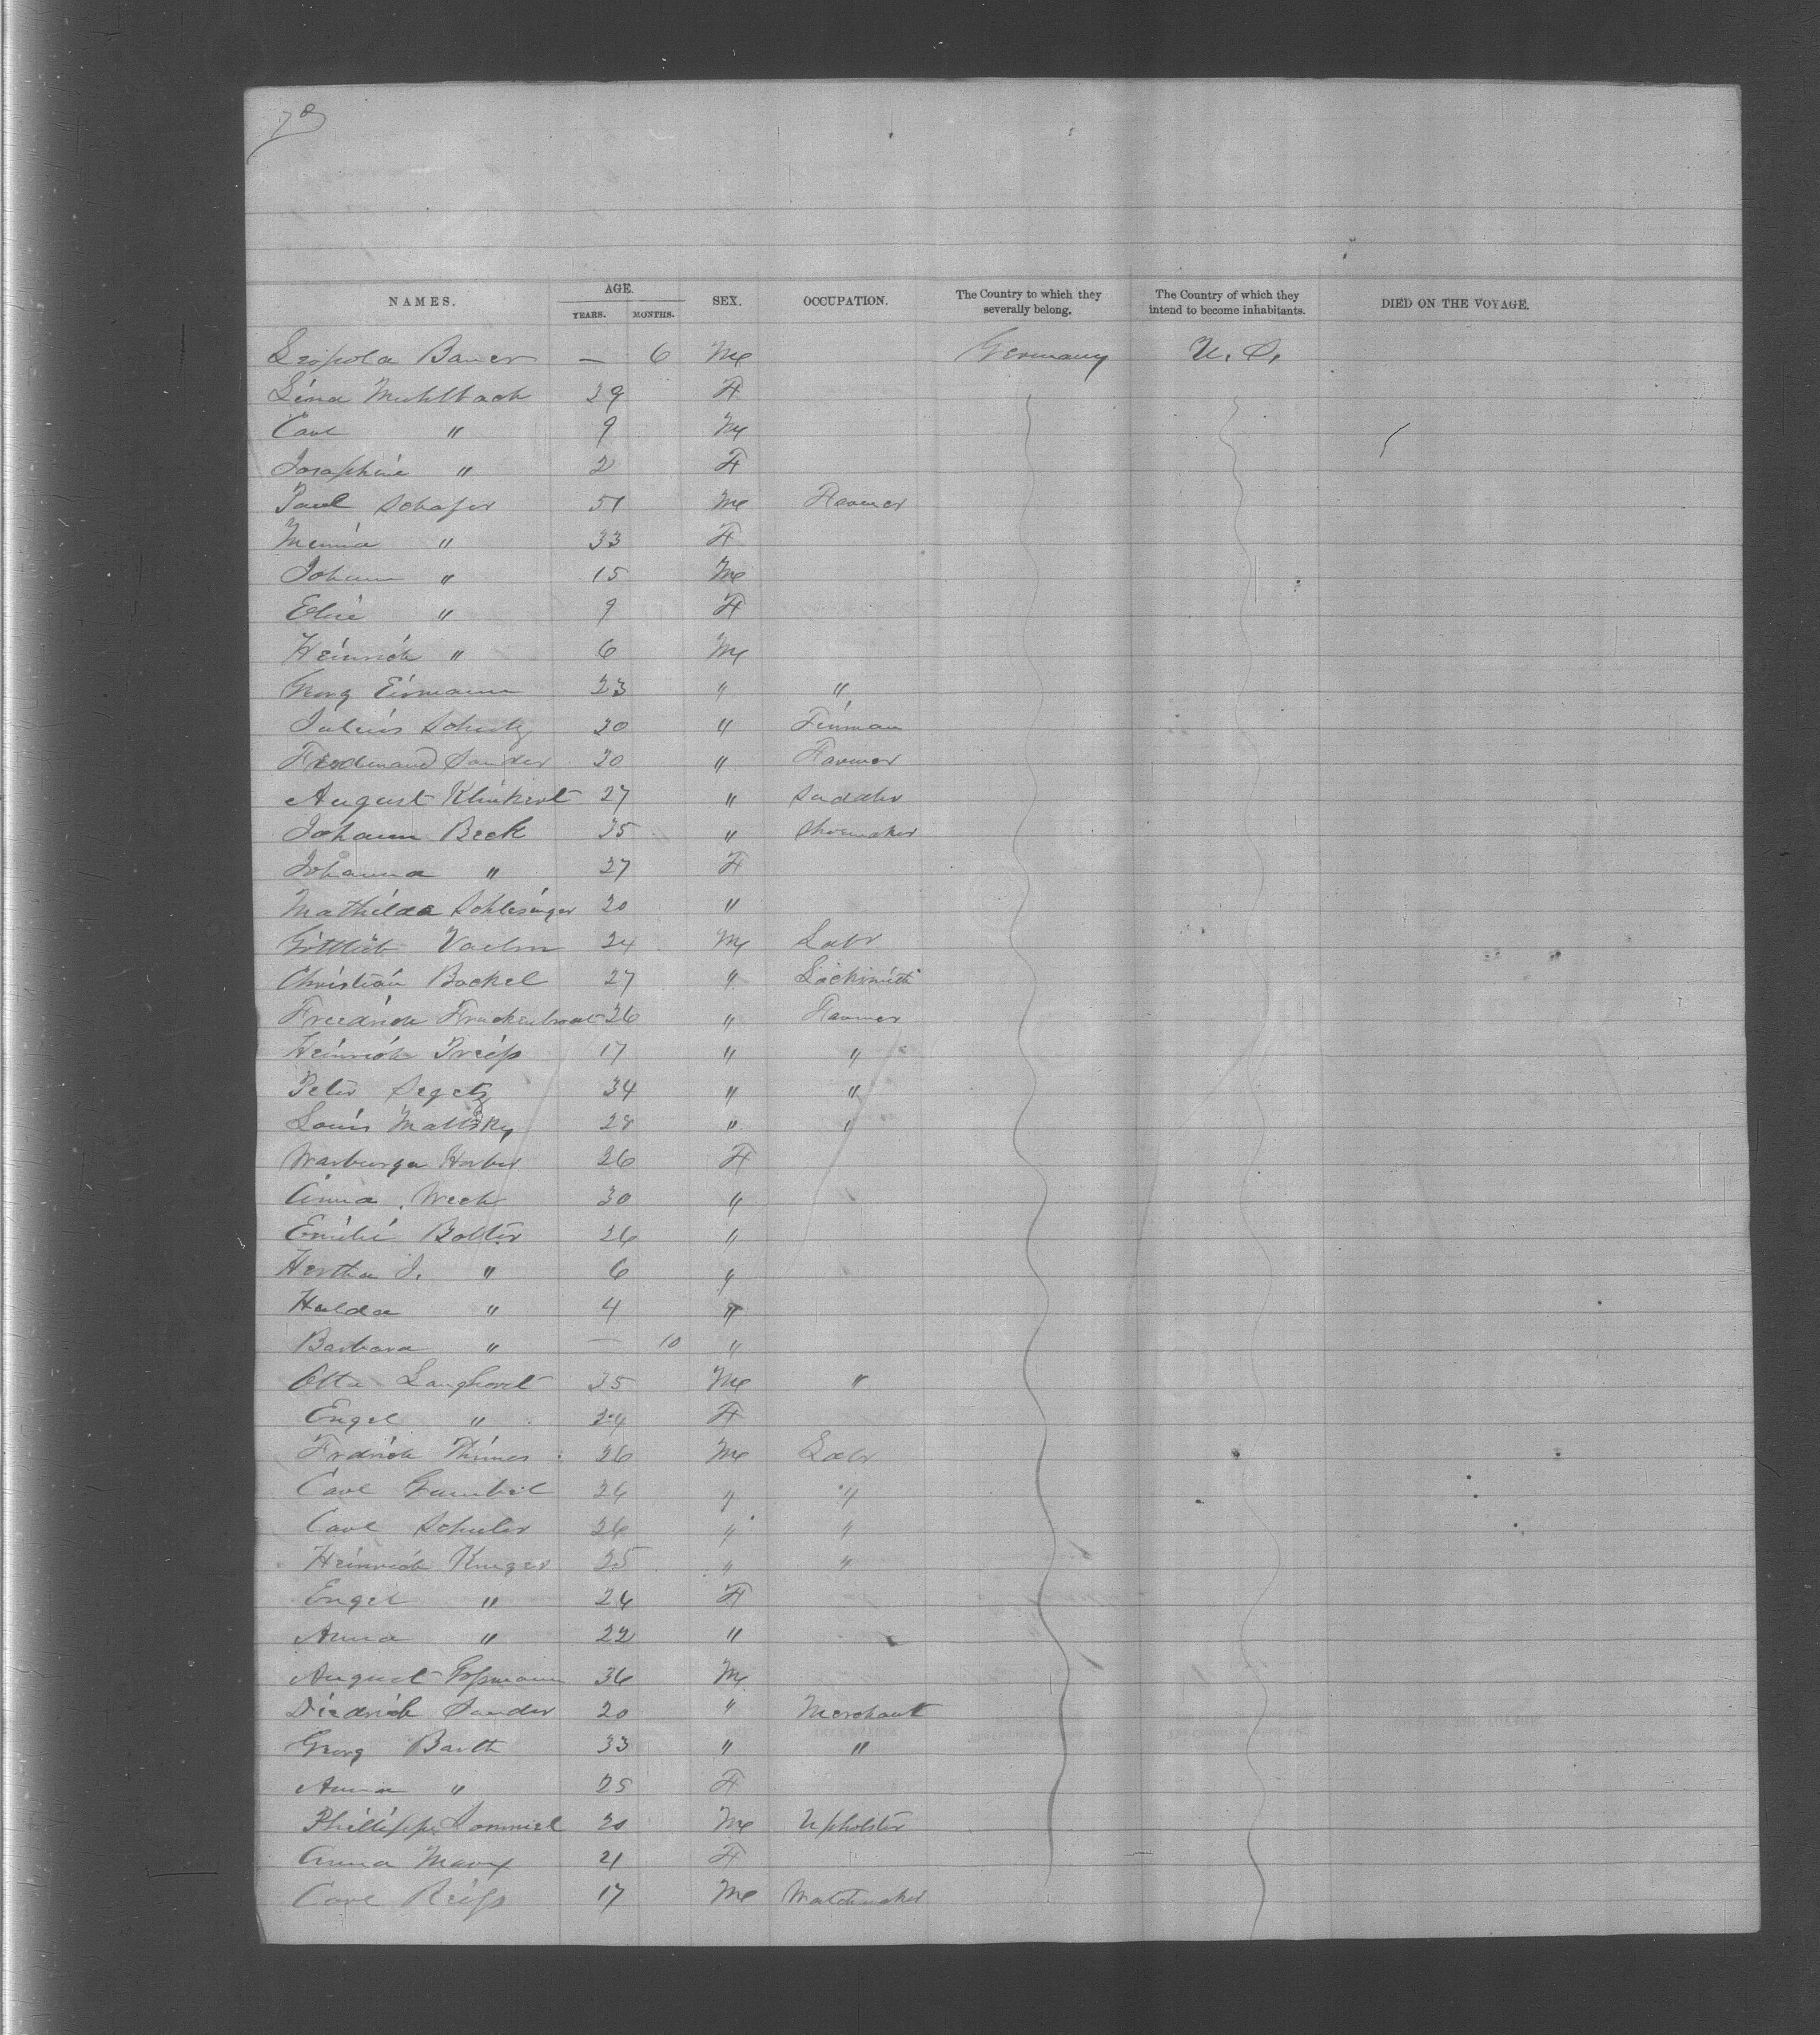 NAMES. AGE. YEARS. MONTHS. SEX. OCCUPATION. The Country to which they severally belong. The Country of which they intend to become inhabitants. DIED ON THE VOYAGE.
Leopold Bauer — 6 M Germany U. S.
Lina Muhlbach 29 F
Carl " 9 M
Josephine " 2 F
Paul Schafer 51 M Farmer
Minna " 33 F
Johann " 15 M
Elise " 9 F
Heinrich " 6 M
Georg Eirmann 23 " "
Julius Schutz 20 "
Ferdinand Sander 30 " Farmer
August Klinkert 27 " Saddler
Johann Beck 35 " Shoemaker
Johanna " 27 F
Mathilda Schlesinger 20 "
Gottlieb 24 M Labr
Christian Bockel 27 " Locksmith
Friedrich 26 " Farmer
Heinrich Preiss 17 " "
Peter Segetz 34 " "
Louis Mattsky 28 " "
Warburga Horber 26 F
Anna Weck 30 "
Emilie Bolter 26 "
Hertha J. " 6 "
Hulda " 4 "
Barbara " — 10 "
Otto Langhorst 35 M "
Engel " 34 F
Fredrich Thimes 26 M Labr
Carl Gumbel 26 " "
Carl Schuler 26 " "
Heinrich Kruger 25 " "
Engel " 24 F
Anna " 22 "
August 36 M
Diedrich Sander 20 " Merchant
Georg Barth 33 " "
Anna " 25 F
Phillippe 20 M Upholster
Anna Marx 21 F
Carl Reiss 17 M Watchmaker